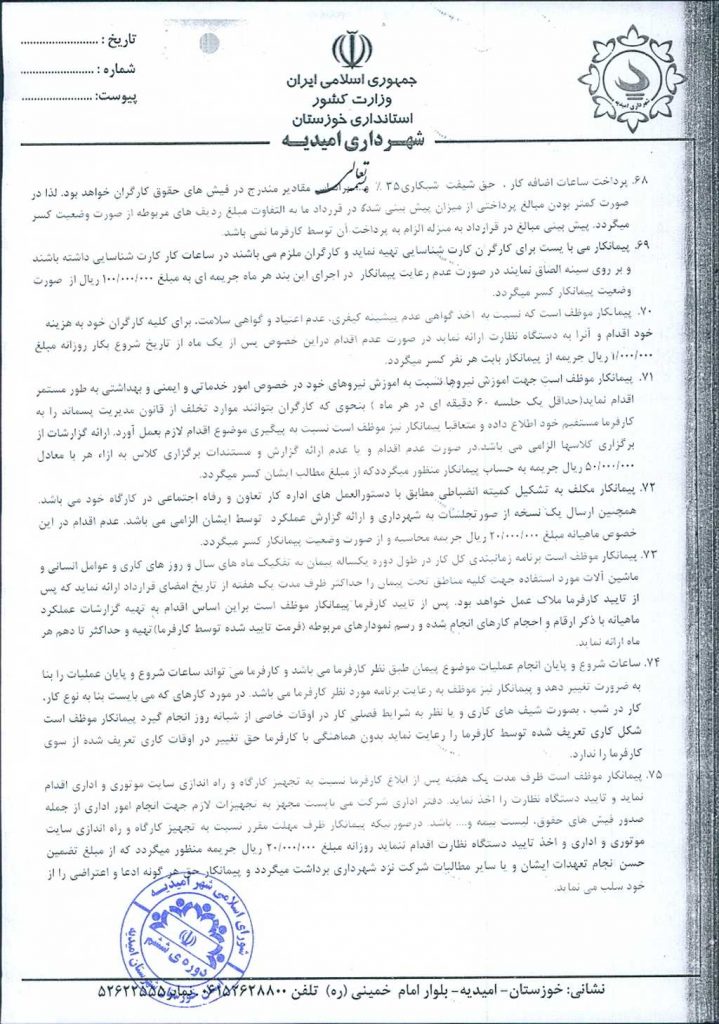 تاریخ : ........................
شماره : ........................
پیوست: ........................
جمهوری اسلامی ایران
وزارت کشور
استانداری خوزستان
شهرداری امیدیه
شهرداری امیدیه
بسمه تعالی
۶۸. پرداخت ساعات اضافه کار ، حق شیفت شبکاری۳۵ ٪ مقادیر مندرج در فیش های حقوق کارگران خواهد بود. لذا در
صورت کمتر بودن مبالغ پرداختی از میزان پیش بینی شده در قرارداد ما به التفاوت مبلغ ردیف های مربوطه از صورت وضعیت کسر
میگردد. پیش بینی مبالغ در قرارداد به منزله الزام به پرداخت آن توسط کارفرما نمی باشد.
۶۹. پیمانکار می با یست برای کارگرن کارت شناسایی تهیه نماید و کارگران ملزم می باشند در ساعات کار کارت شناسایی داشته باشند
و بر روی سینه الصاق نمایند در صورت عدم رعایت پیمانکار در اجرای این بند هر ماه جریمه ای به مبلغ ۱۰۰/۰۰۰/۰۰۰ ریال از صورت
وضعیت پیمانکار کسر میگردد.
۷۰. پیمانکار موظف است که نسبت به اخذ گواهی عدم پیشینه کیفری، عدم اعتیاد و گواهی سلامت، برای کلیه کارگران خود به هزینه
خود اقدام و آنرا به دستگاه نظارت ارائه نماید در صورت عدم اقدام دراین خصوص پس از یک ماه از تاریخ شروع بکار روزانه مبلغ
۱/۰۰۰/۰۰۰ ریال جریمه از پیمانکار بابت هر نفر کسر میگردد.
۷۱. پیمانکار موظف است جهت اموزش نیروها نسبت به اموزش نیروهای خود در خصوص امور خدماتی و ایمنی و بهداشتی به طور مستمر
اقدام نماید(حداقل یک جلسه ۶۰ دقیقه ای در هر ماه ) بنحوی که کارگران بتوانند موارد تخلف از قانون مدیریت پسماند را به
کارفرما مستقیم خود اطلاع داده و متعاقبا پیمانکار نیز موظف است نسبت به پیگیری موضوع اقدام لازم بعمل آورد. ارائه گزارشات از
برگزاری کلاسها الزامی می باشد.در صورت عدم اقدام و یا عدم ارائه گزارش و مستندات برگزاری کلاس به ازاء هر با معادل
۵۰/۰۰۰/۰۰۰ ریال جریمه به حساب پیمانکار منظور میگرددکه از مبلغ مطالب ایشان کسر میگردد.
۷۲. پیمانکار مکلف به تشکیل کمیته انضباطی مطابق با دستورالعمل های اداره کار تعاون و رفاه اجتماعی در کارگاه خود می باشد.
همچنین ارسال یک نسخه از صورتجلسات به شهرداری و ارائه گزارش عملکرد توسط ایشان الزامی می باشد. عدم اقدام در این
خصوص ماهیانه مبلغ ۲۰/۰۰۰/۰۰۰ ریال جریمه محاسبه و از صورت وضعیت پیمانکار کسر میگردد.
۷۳. پیمانکار موظف است برنامه زمانبندی کل کار در طول دوره یکساله پیمان به تفکیک ماه های سال و روز های کاری و عوامل انسانی و
ماشین آلات مورد استفاده جهت کلیه مناطق تحت پیمان را حداکثر ظرف مدت یک هفته از تاریخ امضای قرارداد ارائه نماید که پس
از تایید کارفرما ملاک عمل خواهد بود. پس از تایید کارفرما پیمانکار موظف است براین اساس اقدام به تهیه گزارشات عملکرد
ماهیانه با ذکر ارقام و احجام کارهای انجام شده و رسم نمودارهای مربوطه (فرمت تایید شده توسط کارفرما)تهیه و حداکثر تا دهم هر
ماه ارائه نماید.
۷۴. ساعات شروع و پایان انجام عملیات موضوع پیمان طبق نظر کارفرما می باشد و کارفرما می تواند ساعات شروع و پایان عملیات را بنا
به ضرورت تغییر دهد و پیمانکار نیز موظف به رعایت برنامه مورد نظر کارفرما می باشد. در مورد کارهای که می بایست بنا به نوع کار،
کار در شب ، بصورت شیف های کاری و یا نظر به شرایط فصلی کار در اوقات خاصی از شبانه روز انجام گیرد پیمانکار موظف است
شکل کاری تعریف شده توسط کارفرما را رعایت نماید بدون هماهنگی با کارفرما حق تغییر در اوقات کاری تعریف شده از سوی
کارفرما را ندارد.
۷۵. پیمانکار موظف است ظرف مدت یک هفته پس از ابلاغ کارفرما نسبت به تجهیز کارگاه و راه اندازی سایت موتوری و اداری اقدام
نماید و تایید دستگاه نظارت را اخذ نماید. دفتر اداری شرکت می بایست مجهز به تجهیزات لازم جهت انجام امور اداری از جمله
صدور فیش های حقوق، لیست بیمه و.... باشد. درصورتیکه پیمانکار ظرف مهلت مقرر نسبت به تجهیز کارگاه و راه اندازی سایت
موتوری و اداری و اخذ تایید دستگاه نظارت اقدام ننماید روزانه مبلغ ۲۰/۰۰۰/۰۰۰ ریال جریمه منظور میگردد که از مبلغ تضمین
حسن نجام تعهدات ایشان و یا سایر مطالبات شرکت نزد شهرداری برداشت میگردد و پیمانکار حق هر گونه ادعا و اعتراضی را از
خود سلب می نماید.
شورای اسلامی شهر امیدیه
دوره ی ششم
استان خوزستان شهرستان امیدیه
نشانی: خوزستان- امیدیه- بلوار امام خمینی (ره) تلفن ۰۶۱۵۲۶۲۸۸۰۰ نمابر۵۲۶۲۳۵۵۵